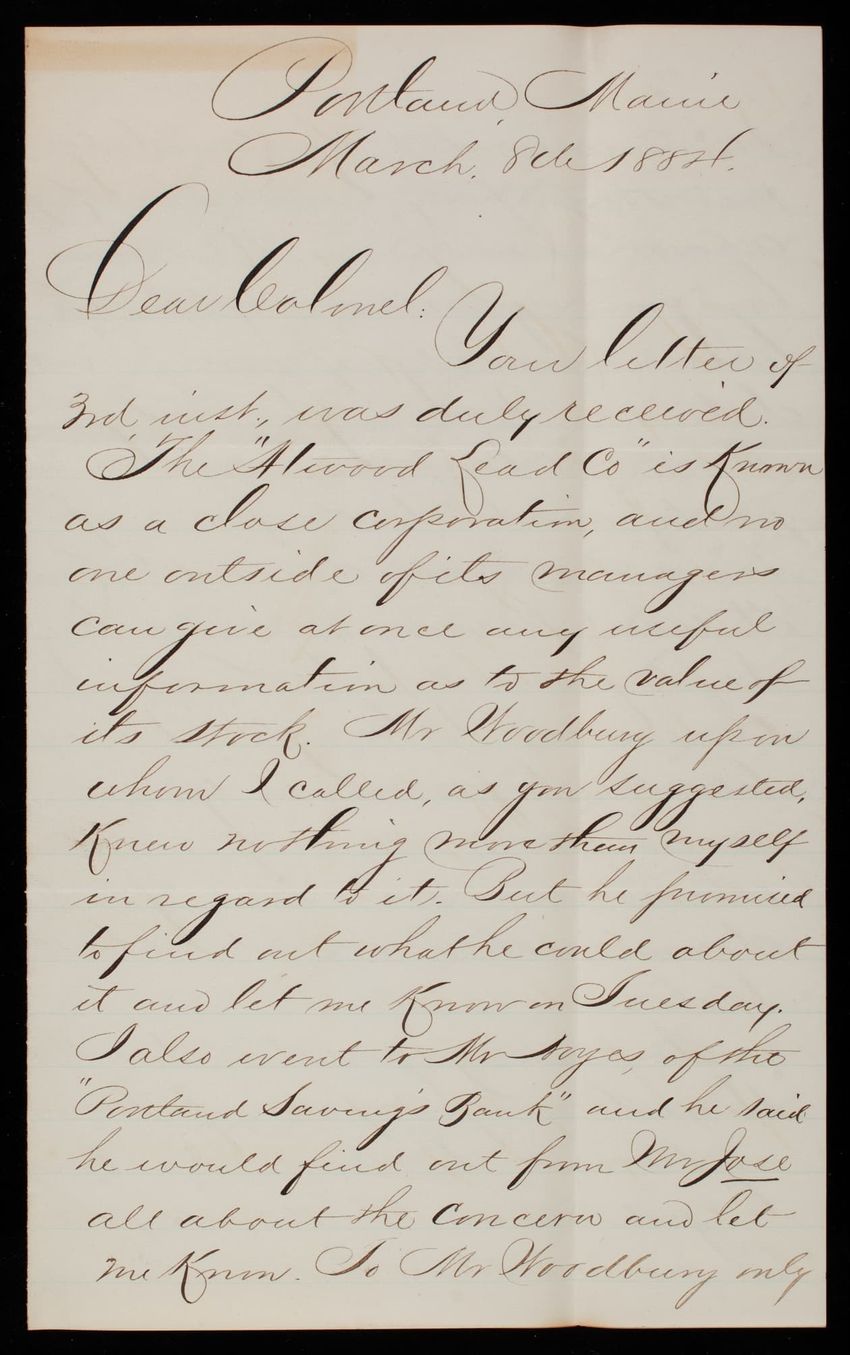 Portland, Maine
March. 8th 1884.
Dear Colonel:
Your letter of
3rd, inst., was duly received.
The "Atwood Lead Co" is Known
as a close corporation, and no
one outside of its managers
can give at once any useful
information as to the value of
its stock. Mr Woodbury upon
whom I called, as you suggested,
Knew nothing more than myself
in regard to it. But he promised
to find out what he could about
it and let me Know on Tuesday.
I also went to Mr Noyes, of the
"Portland Saving's Bank" and he said
he would find out from Mr Jose
all about the concern and let
me Know. To Mr Woodbury only